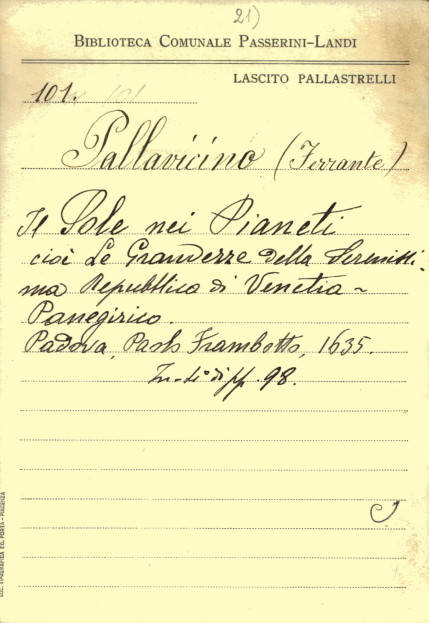 21)
BIBLIOTECA COMUNALE PASSERINI-LANDI
LASCITO PALLASTRELLI
101.
Pallavicino (Ferrante)
Il Sole nei Pianeti
cioè Le Grandezze della Serenissi-
ma Repubblica di Venetia -
Panegirico.
Padova, Paolo Frambotto, 1635.
In-4° di pp. 98.
SOC. TIPOGRAFICA ED. PORTA - PIACENZA